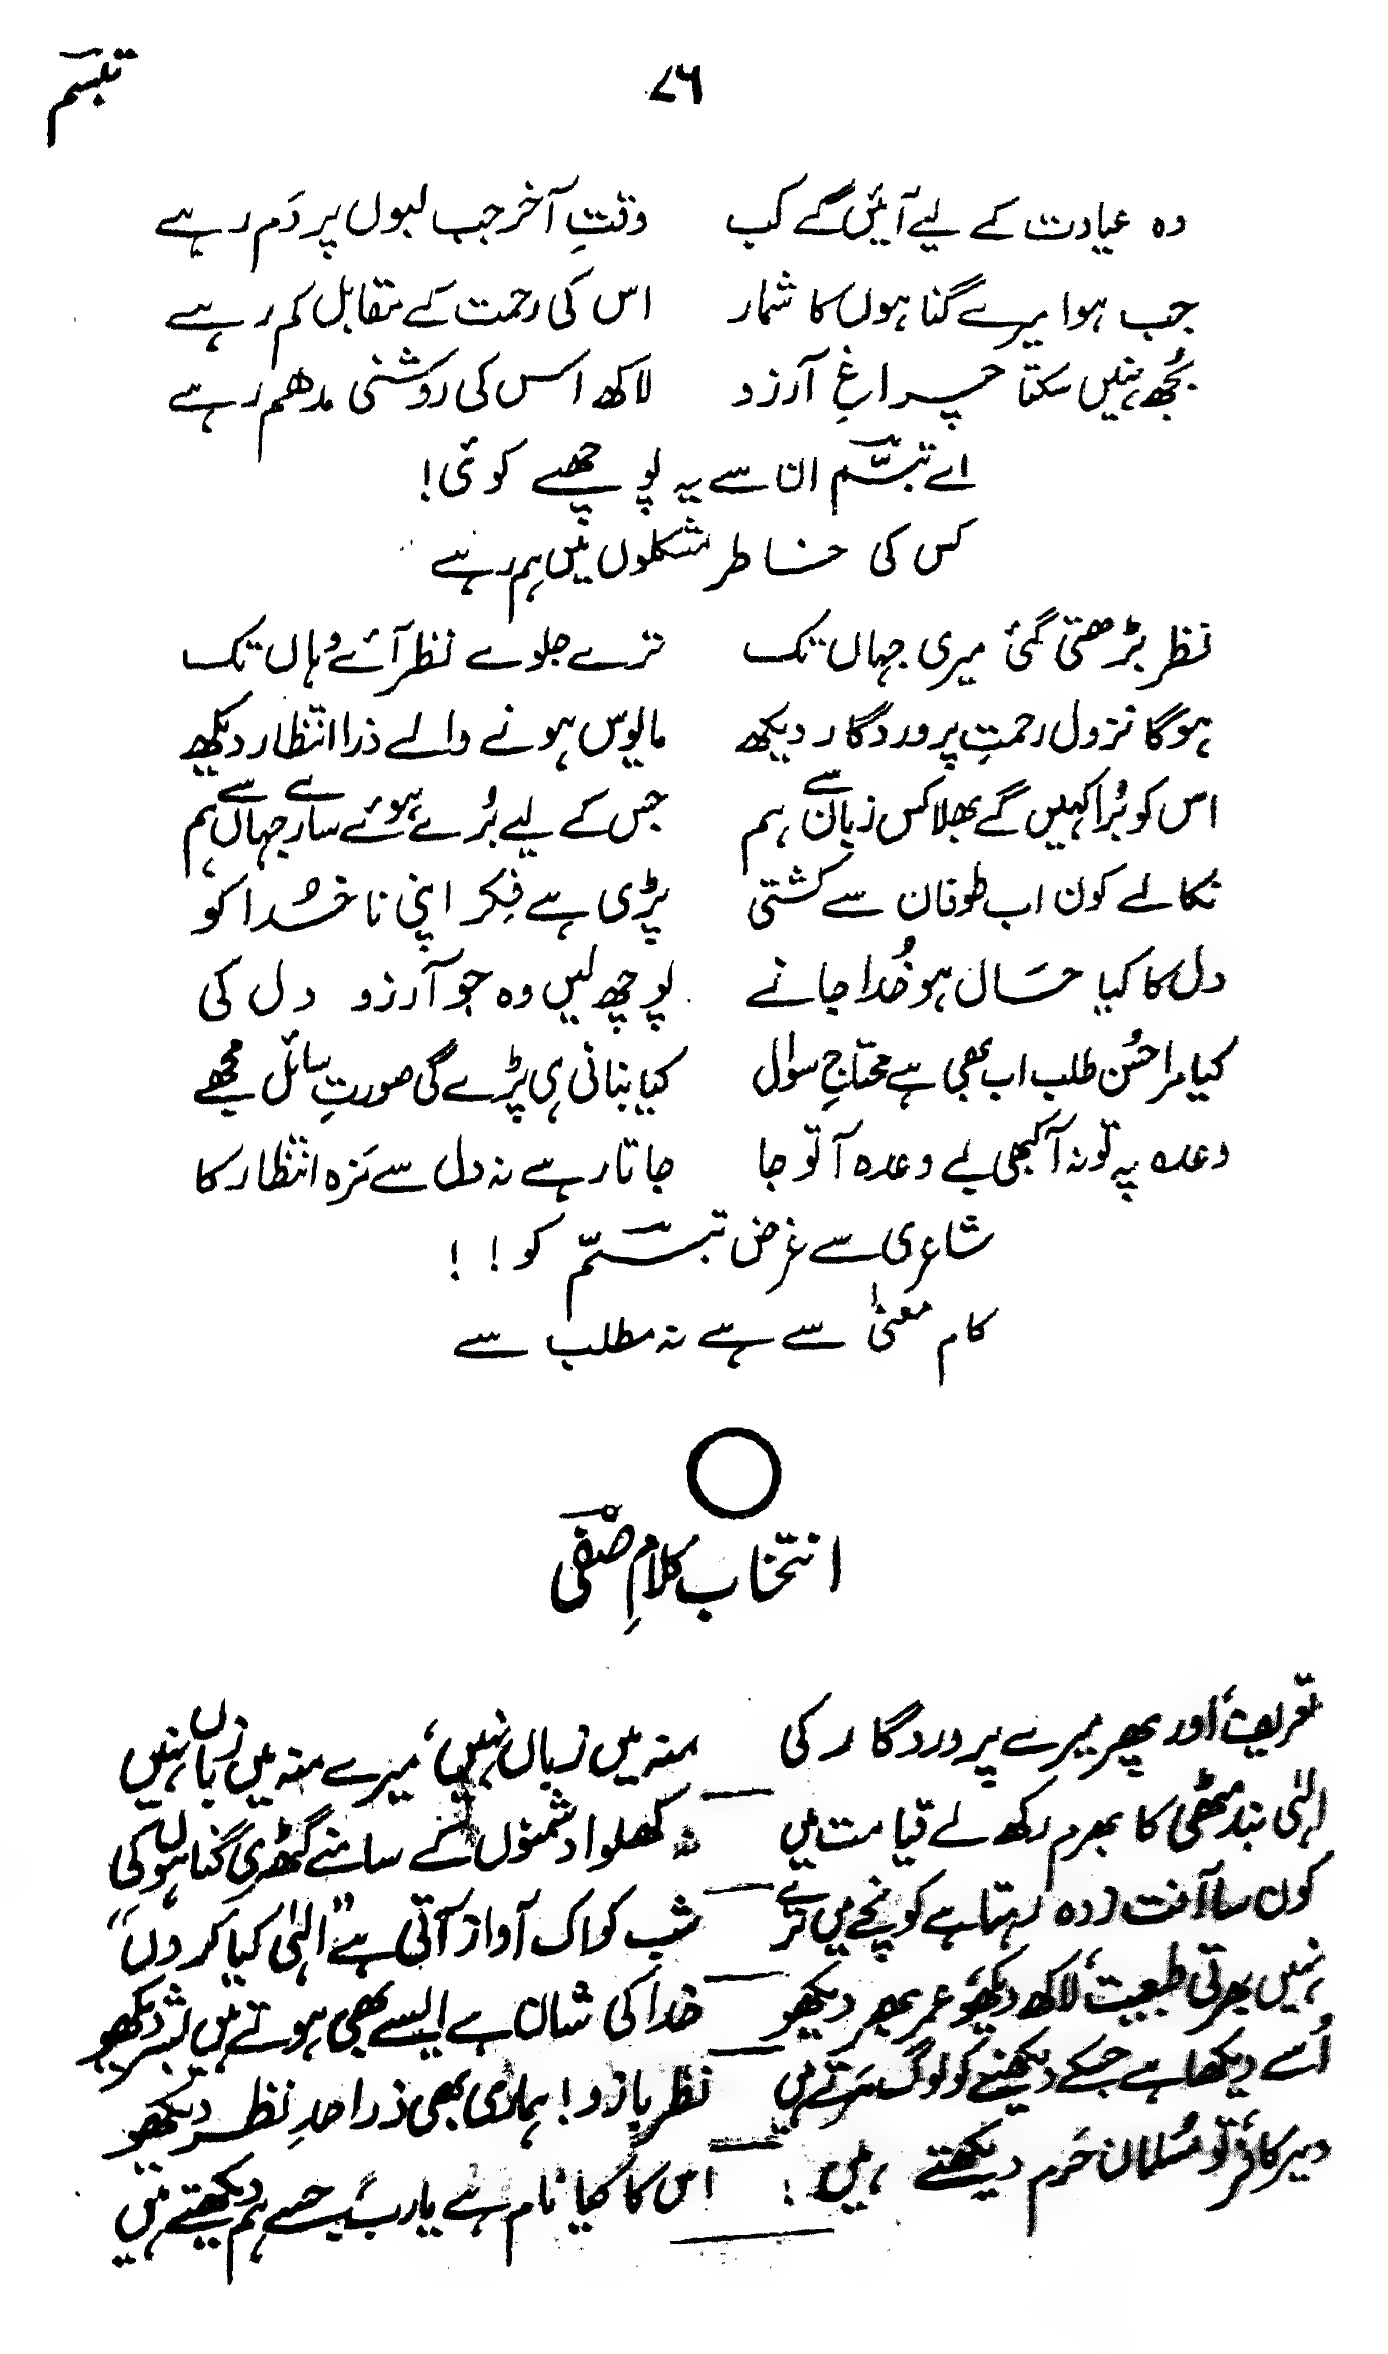 تبسم ۷۶
وہ عیادت کے لیے آئیں گے کب وقتِ آخر جب لبوں پر دَم رہے
جب ہوا میرے گناہوں کا شمار اس کی رحمت کے مقابل کم رہے
بُجھ نہیں سکتا چراغِ آرزو لاکھ اس کی روشنی مدھم رہے
اے تبسّم ان سے یہ پوچھے کوئی!
کس کی خاطر مشکلوں میں ہم رہے
نظر بڑھتی گئی میری جہاں تک ترے جلوے نظر آئے وُہاں تک
ہوگا نزول رحمتِ پروردگار دیکھ مایوس ہونے والے ذرا انتظار دیکھ
اس کو بُرا کہیں گے بھلا کس زبان سے ہم جس کے لیے بُرے ہوئے سارے جہاں سے ہم
نکالے کون اب طوفان سے کشتی پڑی ہے فِکر اپنی ناخُدا کو
دل کا کیا حَال ہو خُدا جانے پوچھ لیں وہ جو آرزو دل کی
کیا مرا حُسن طلب اب بھی ہے محتاجِ سوال کیا بنانی ہی پڑے گی صورتِ سائل مجھے
وعدہ پہ تو نہ آ کبھی لے وعدہ آ تو جا جاتا رہے نہ دل سے مَزہ انتظار کا
شاعری سے غرض تبسّم کو!!
کام معنیٰ سے ہے نہ مطلب سے
انتخاب کلامِ صفی
تعریف، اور پھر میرے پروردگار کی منہ میں زباں نہیں، میرے منہ میں زباں نہیں
الٰہی بند مٹھی کا بھرم رکھ لے قیامت میں نہ کھلوا دشمنوں کے سامنے گٹھری گناہوں کی
کون سا آفت زدہ رہتا ہے کوچے میں ترے شب کو اک آواز آتی ہے "الٰہی کیا کروں"
نہیں بھرتی طبیعت، لاکھ دیکھو، عمر بھر دیکھو خدا کی شان ہے ایسے بھی ہوتے ہیں بشر دیکھو
اُسے دیکھا ہے جسکے دیکھنے کو لوگ مَرتے ہیں نظر بازو! ہماری بھی ذرا حدِ نظر دیکھو
دیر کافر، تو مُسلمان حَرم دیکھتے ہیں! اس کا کیا نام ہے یارب، جسے ہم دیکھتے ہیں